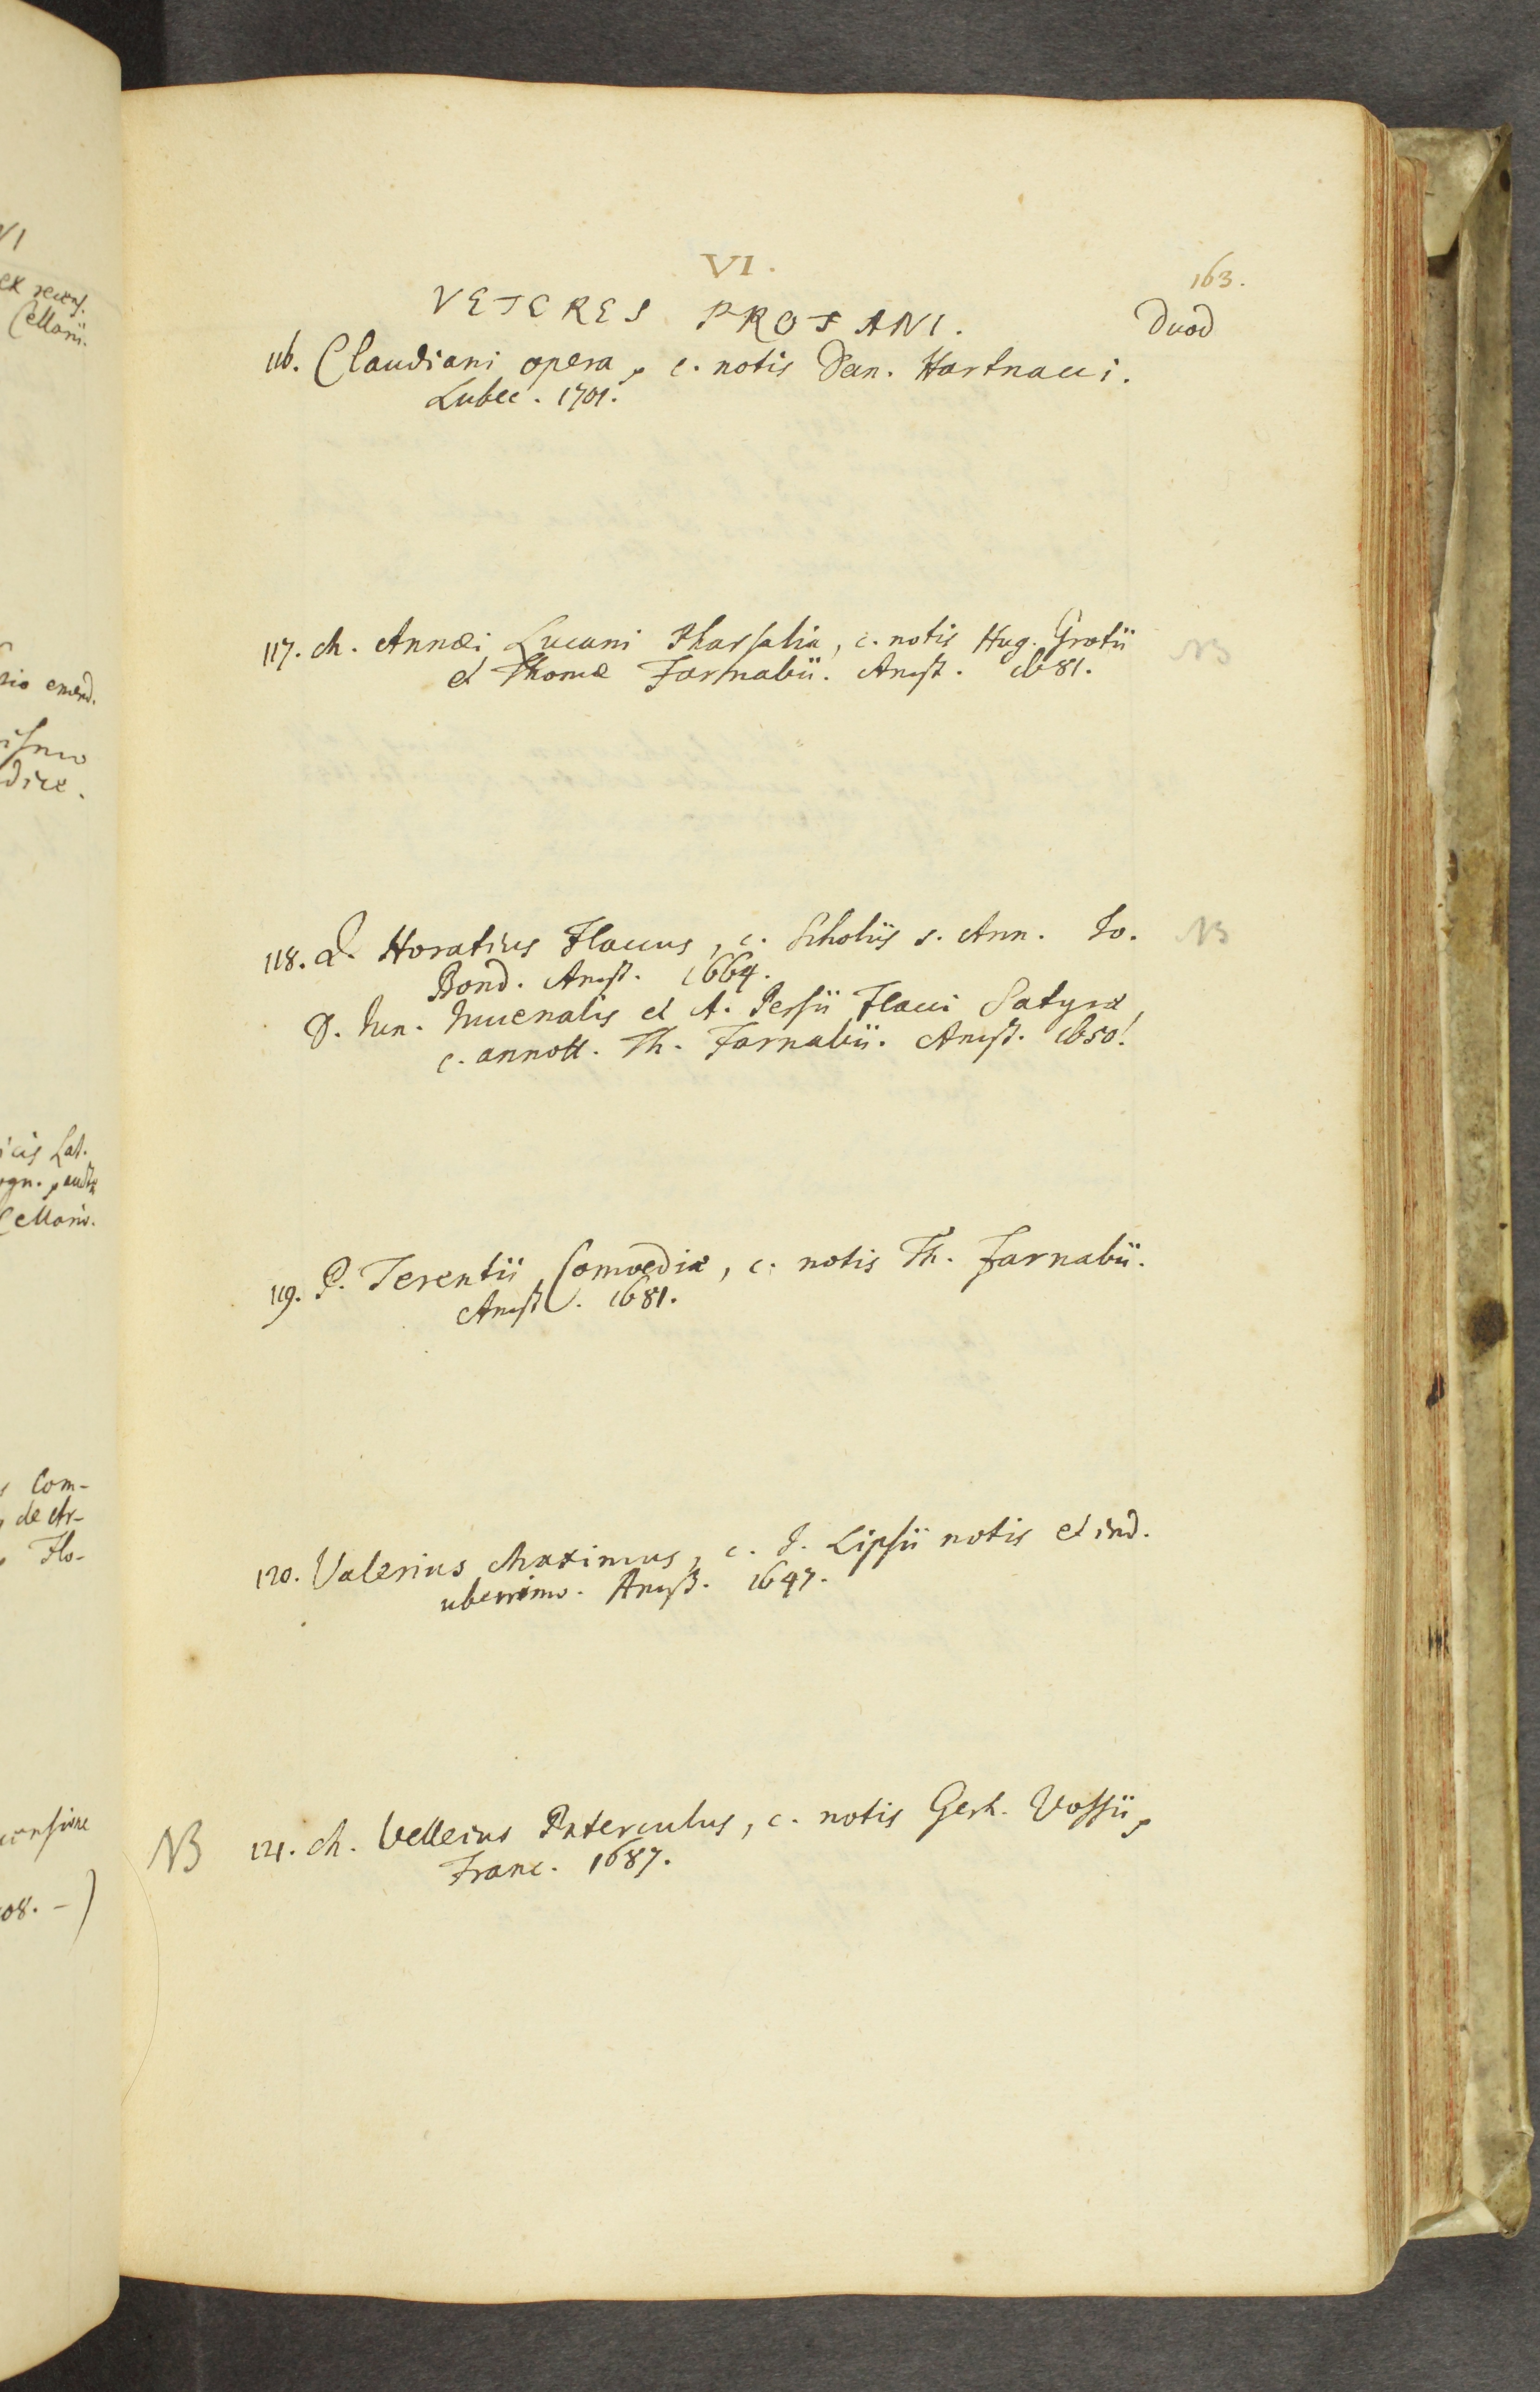 VI.
163.
VETERES PROFANI.
Duod
116. Claudiani opera, c. notis Dan. Hartnacci.
Lubec. 1701.
117. M. Annæi Lucani Pharsalia, c. notis Hug. Grotii
et Thomæ Farnabii. Amst. 1681.
NB
118. Q. Horatius Flaccus, c. Scholiis s. Ann. Io.
Bond. Amst. 1664.
NB
D. Iun. Iuuenalis et A. Persii Flacci Satyræ,
c. annott. Th. Farnabii. Amst. 1650.
119. P. Terentii Comoediæ, c. notis Th. Farnabii.
Amst. 1681.
120. Valerius Maximus, c. I. Lipsii notis et ind.
uberrimo. Amst. 1647.
NB 121. M. Velleius Paterculus, c. notis Gerh. Vossii,
Franc. 1687.